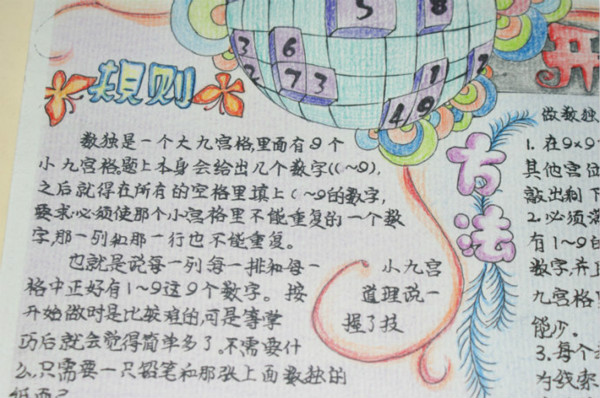 5 8
3 6 1
2 7 3
4 9
规则
开
方法
数独是一个大九宫格,里面有9个
小九宫格,题上本身会给出几个数字((~9),
之后就得在所有的空格里填上(~9的数字,
要求必须使那个小宫格里不能重复的一个数
字,那一列和那一行也不能重复。
也就是说每一列每一排和每一 小九宫
格中正好有1~9这9个数字。 按 道理说一
开始做时是比较难的,可是等掌 握了技
巧后就会觉得简单多了。不需要什
么,只需要一只铅笔和那张上面数独的
纸而已
做数独
1. 在9×9
其他宫位
敲出剩下
2. 必须
有1~9
数字,并且
九宫格
能少。
3. 每个
为线索